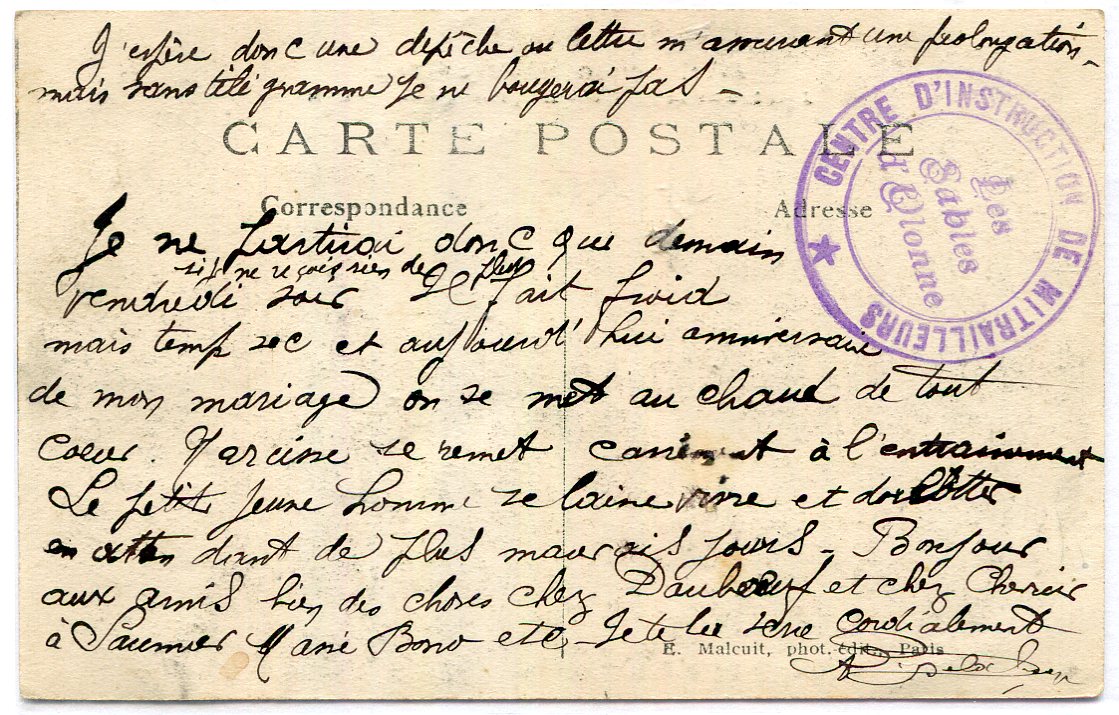 J'espère donc une depêche ou lettre m'assurant une prolongation -
mais sans télégramme je ne bougerai pas -
CARTE POSTALE
Correspondance
Adresse
CENTRE D'INSTRUCTION DE MITRAILLEURS
Les Sables d'Olonne
Je ne partirai donc que demain
si je ne reçois rien de plus
vendredi soir Il fait froid
mais temp sec et aujourd'hui anniversaire
de mon mariage on se met au chaud de tout
coeur. Narcisse se remet carrément à l'entrainement
Le petit jeune homme se laisse vivre et dorlotter
en attendant de plus mauvais jours - Bonjour
aux amis bien des choses chez Dauboeuf et chez
à Saumier Bono etc - Je te la serre cordialement
E. Malcuit, phot. édit. Paris